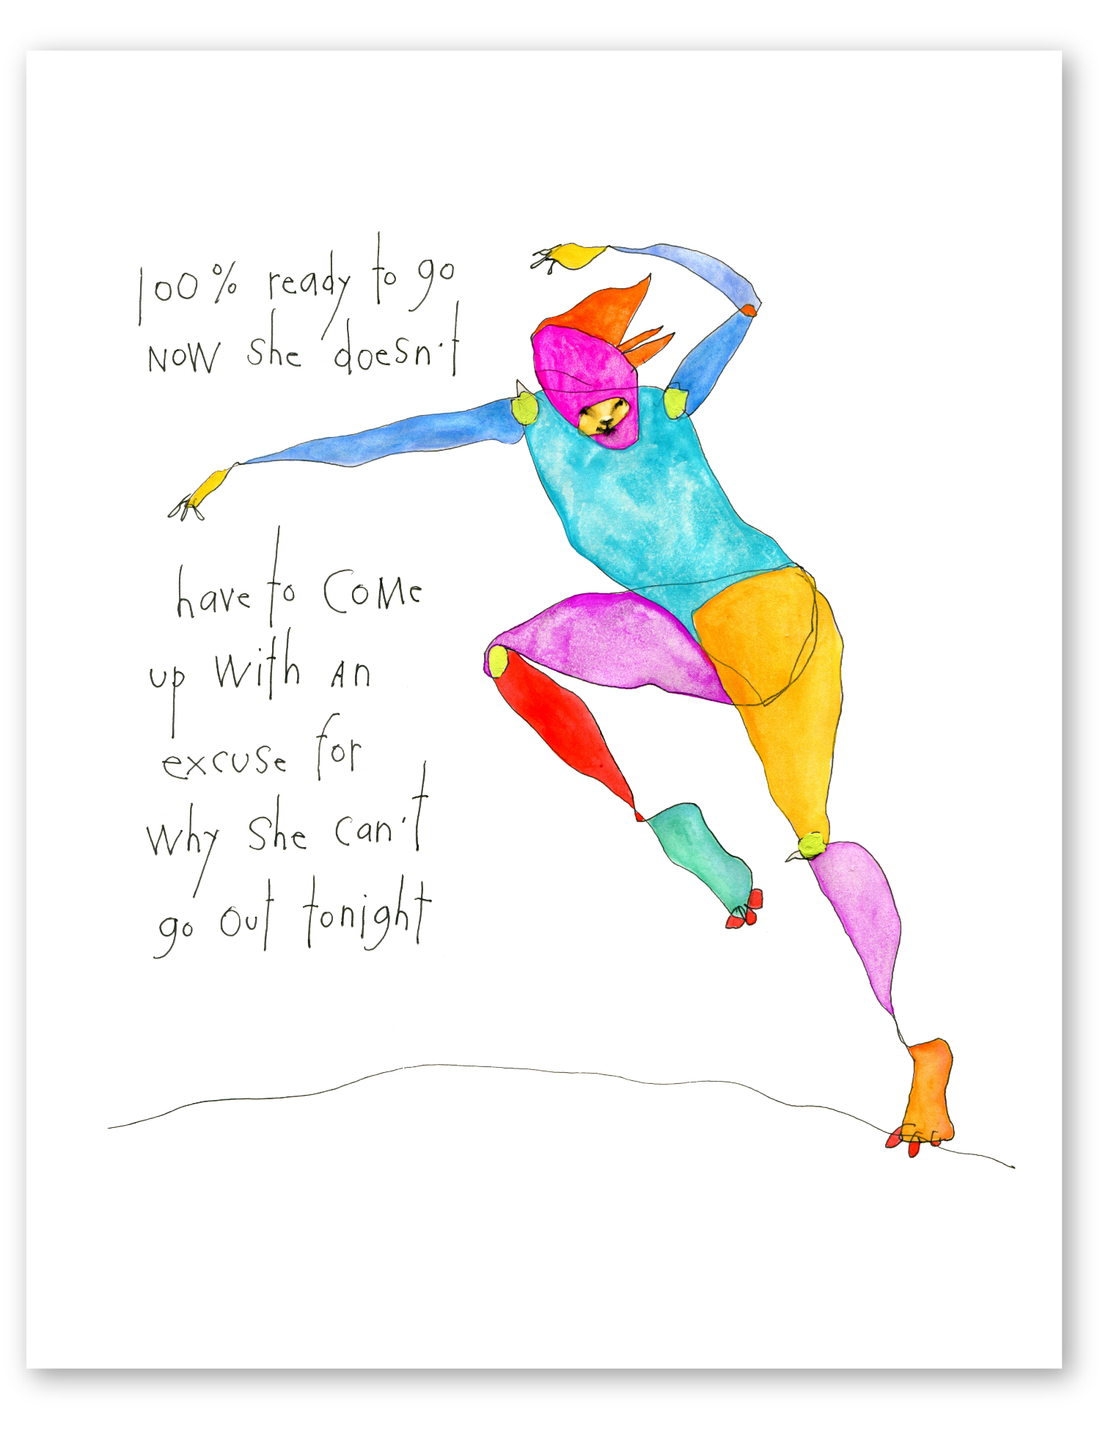 100% ready to go
NOW she doesn't
have to COMe
up with AN
excuse for
why She can't
go out tonight